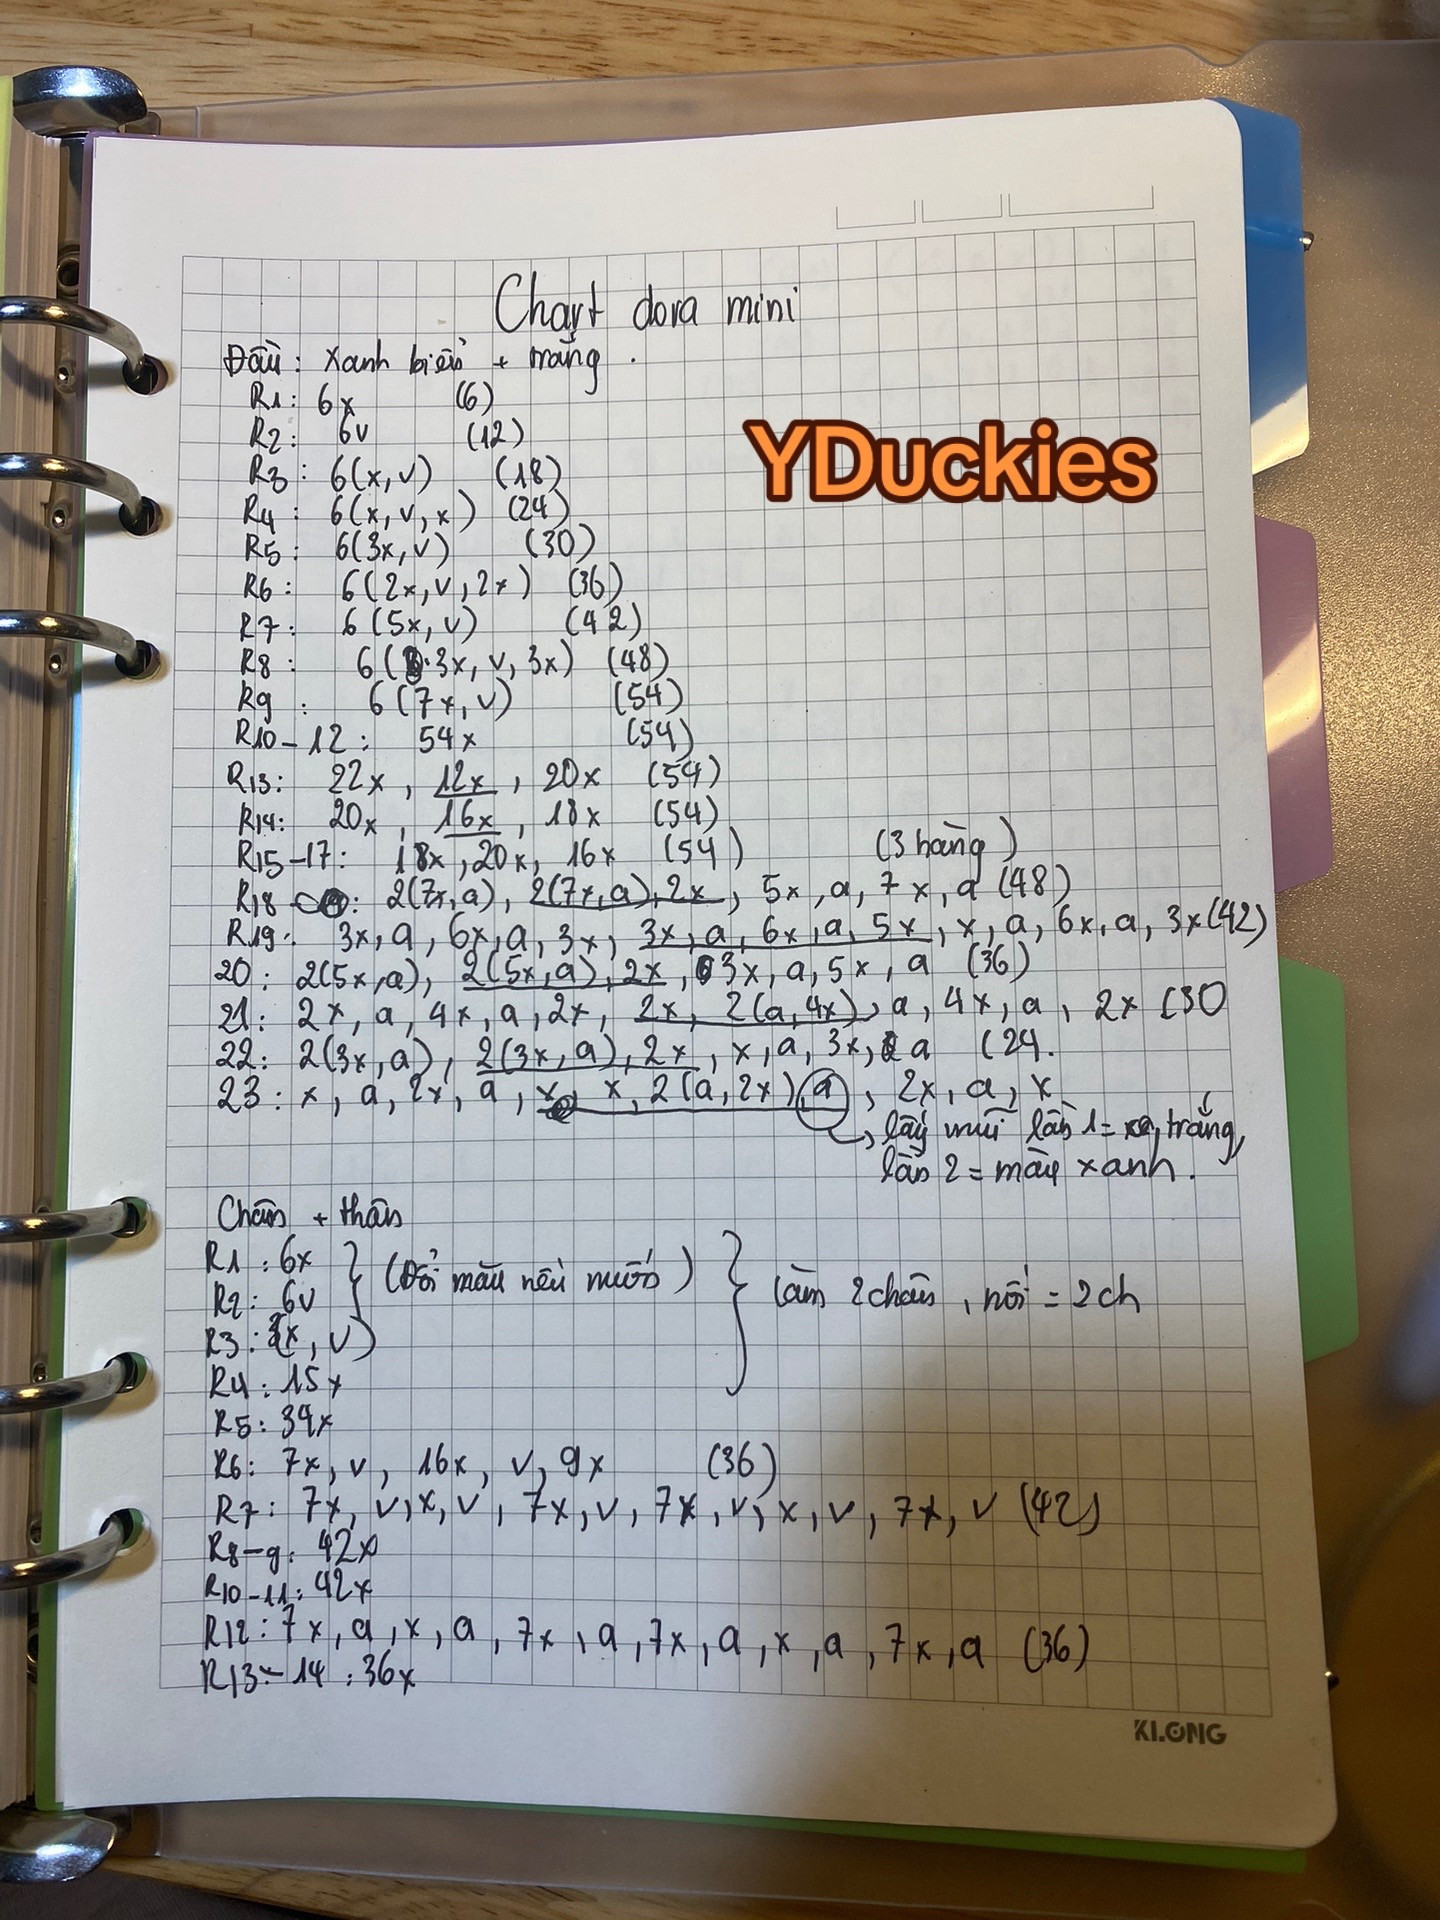 Chart dora mini
Đầu: xanh biển + trắng.
YDuckies
R1: 6x (6)
R2: 6v (12)
R3: 6(x, v) (18)
R4: 6(x, v, x) (24)
R5: 6(3x, v) (30)
R6: 6(2x, v, 2x) (36)
R7: 6(5x, v) (42)
R8: 6(3x, v, 3x) (48)
R9: 6(7x, v) (54)
R10-12: 54x (54)
R13: 22x, 12x, 20x (54)
R14: 20x, 16x, 18x (54)
R15-17: 18x, 20x, 16x (54) (3 hàng)
R18: 2(7x, a), 2(7x, a), 2x, 5x, a, 7x, a (48)
R19: 3x, a, 6x, a, 3x, 3x, a, 6x, a, 5x, x, a, 6x, a, 3x (42)
20: 2(5x, a), 2(5x, a), 2x, 3x, a, 5x, a (36)
21: 2x, a, 4x, a, 2x, 2x, 2(a, 4x), a, 4x, a, 2x (30
22: 2(3x, a), 2(3x, a), 2x, x, a, 3x, a (24.
23: x, a, 2x, a, x, x, 2(a, 2x), a, 2x, a, x
lấy mũi lần 1 = trắng,
lần 2 = màu xanh.
Chân + thân
R1: 6x
R2: 6v (Đổi màu nếu muốn) làm 2 chân, nối = 2ch
R3: (x, v)
R4: 15x
R5: 34x
R6: 7x, v, 16x, v, 9x (36)
R7: 7x, v, x, v, 7x, v, 7x, v, x, v, 7x, v (42)
R8-9: 42x
R10-11: 42x
R12: 7x, a, x, a, 7x, a, 7x, a, x, a, 7x, a (36)
R13-14: 36x
KLONG